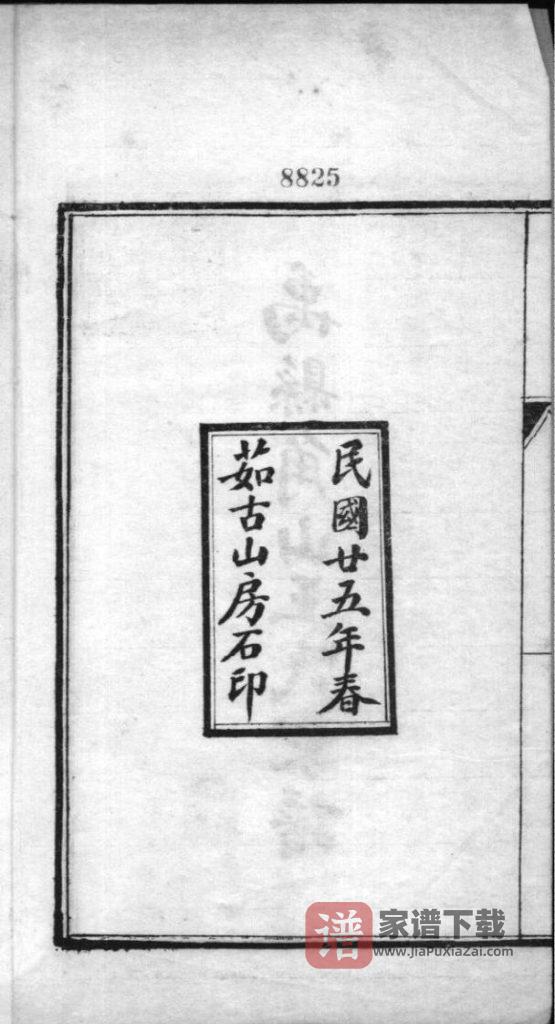 8825
民國廿五年春
茹古山房石印
譜
家谱下载
www.JiaPuXiaZai.com